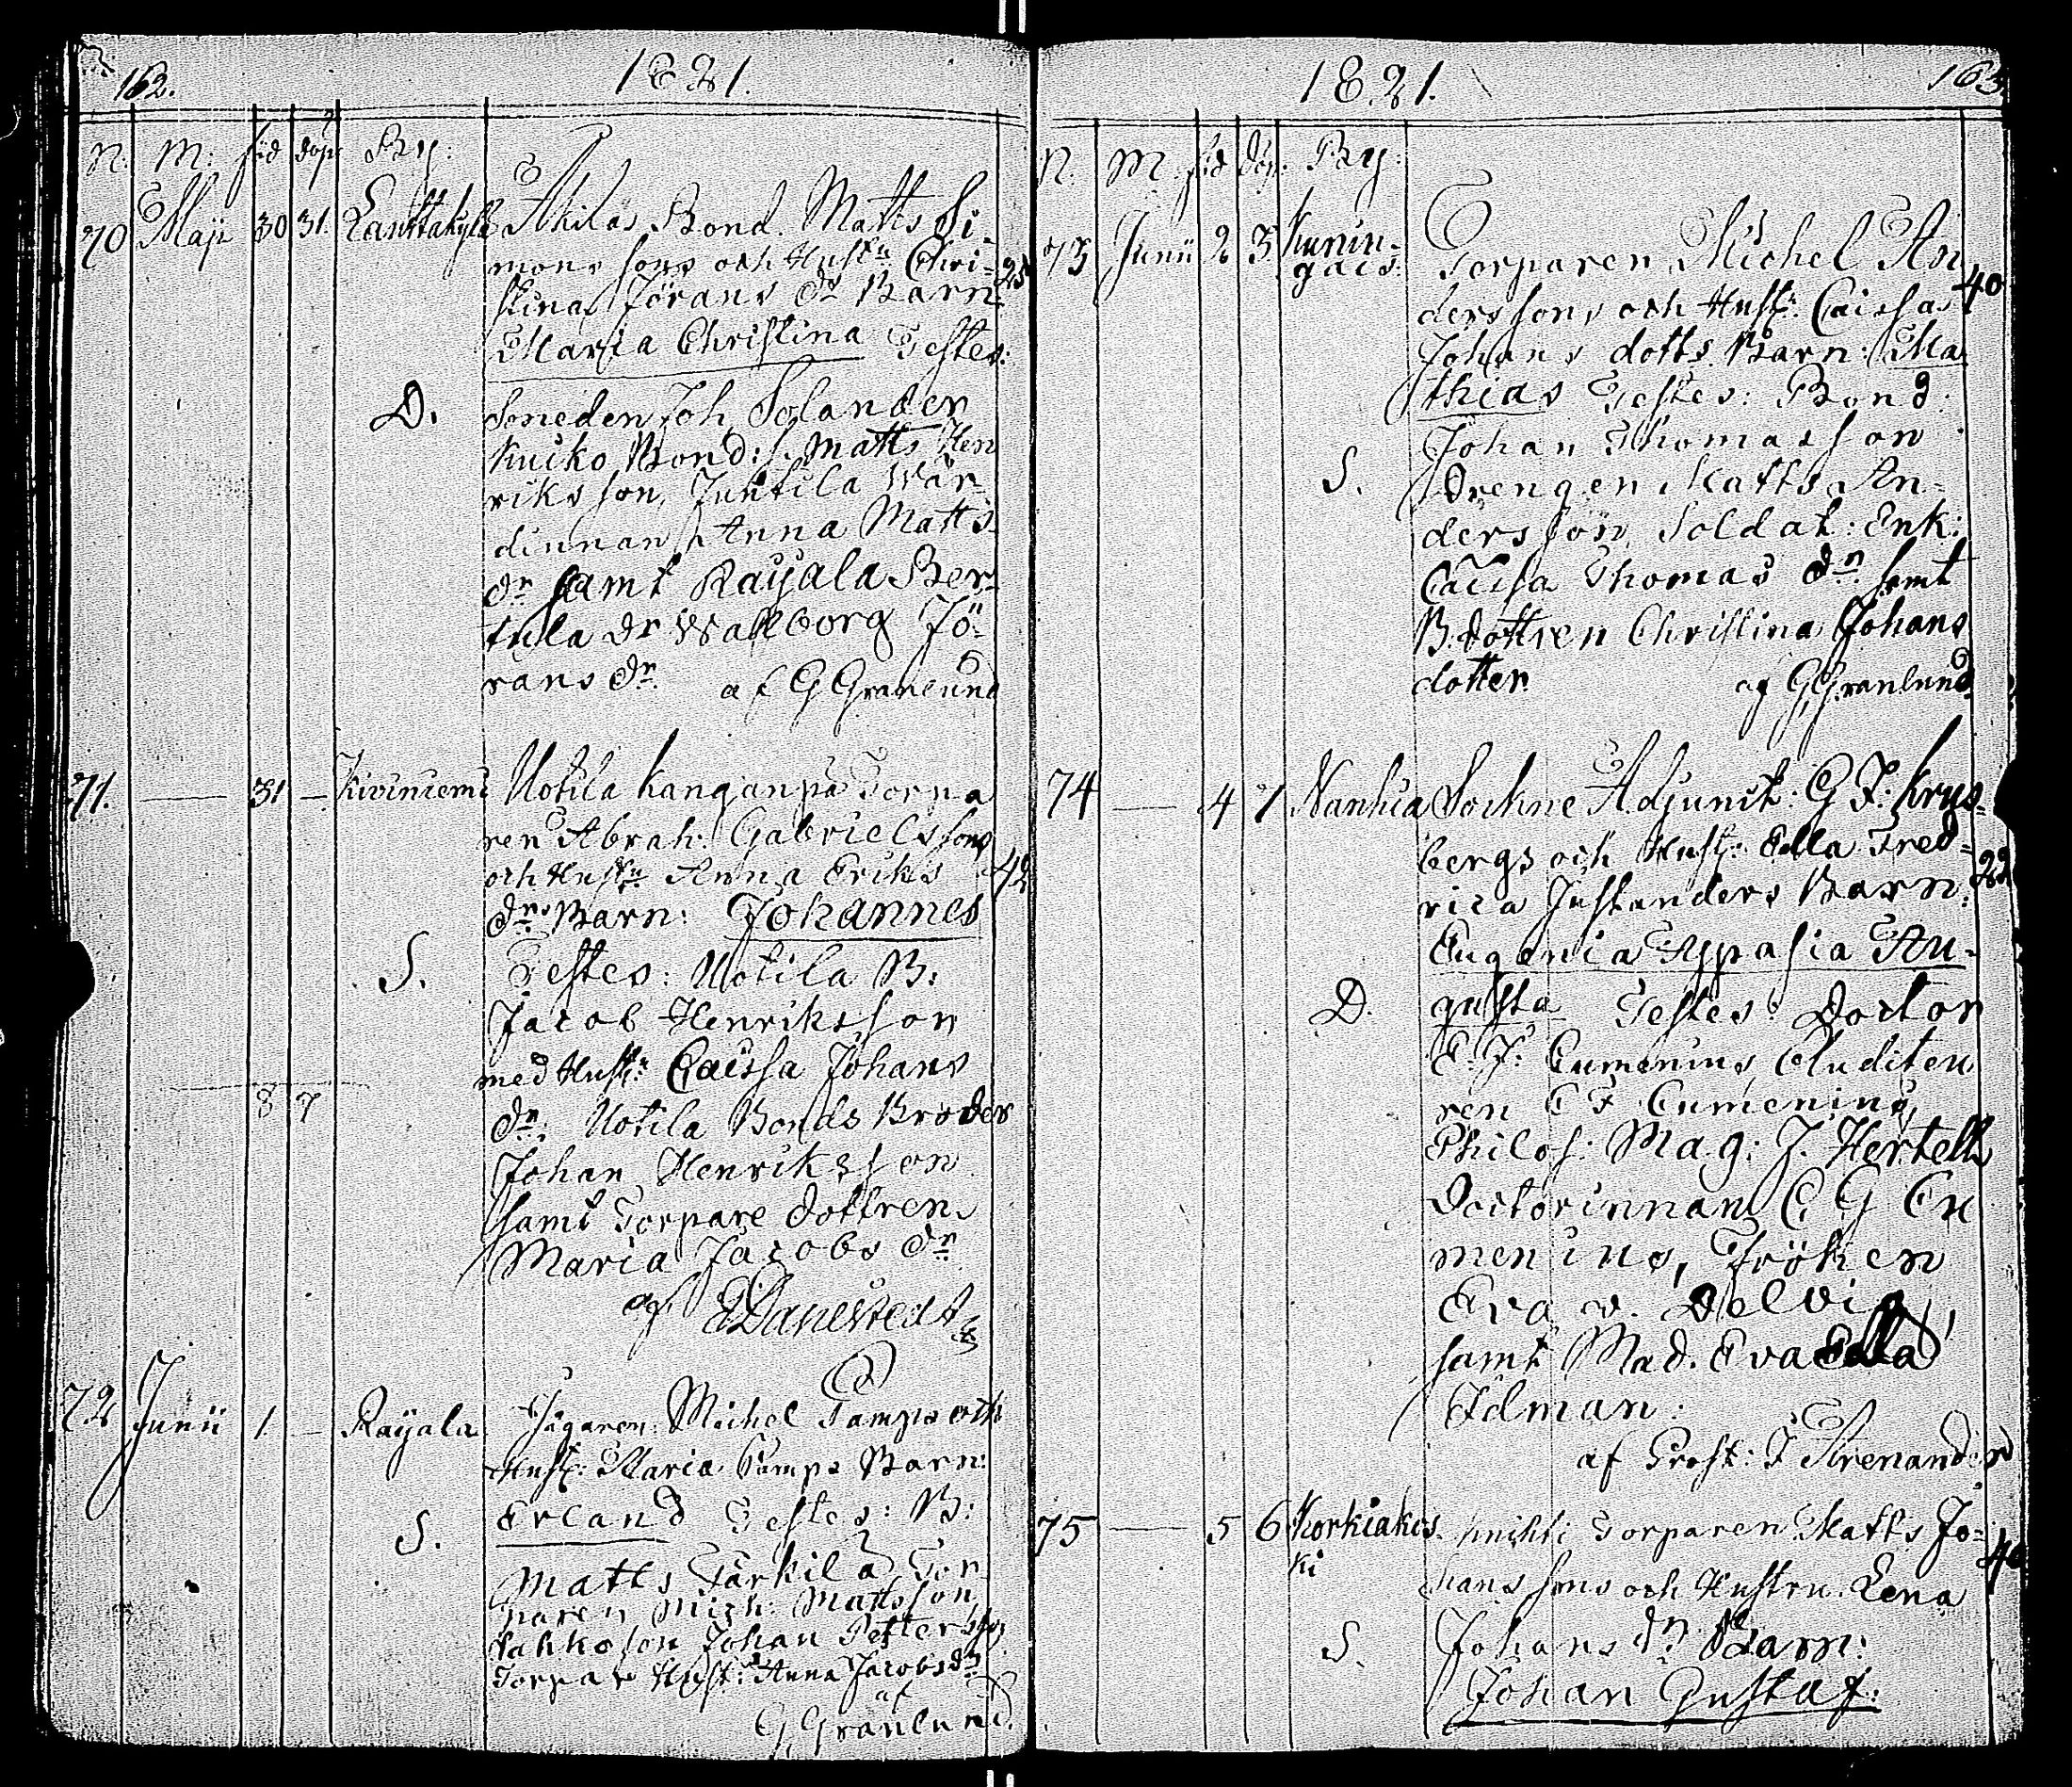 162.
1821.
N: M: föd döpt By:
70 Maji 30 31. Lanttakylä Akilas Bond. Matts Si-
mons sons och Hustu Chri- 25
stina Jörans dr Barn:
Maria Christina Testes:
D. Smeden Joh Solander
Kuiko Bond: s. Matts Hen
riksson, Junttila Wär-
dinnan Anna Matts
dr samt Rayala Ber-
tula dr Wallborg Jö-
rans dr. af G Granlund
71. — 31 — Kiviniemi Uotila Kanganpä Torpa
ren Abrah: Gabrielssons
och Hustu Anna Eriks 42
drs Barn: Johannes
S. Testes: Uotila B:
Jacob Henriksson
med Hust: Caissa Johans
8 7
dr: Uotila Bonds Broder
Johan Henriksson
samt Torpare dottren
Maria Jacobs dr
af
72 Junii 1. — Rayala Michel Tamps och
Hust: Maria Tamps Barn:
Erland Testes: B:
S. Matts Tarkila Tor
paren Mich: Mattsson,
Johan Pettersson
Torpar Hust: Anna Jacobsdr
af
G Granlund.
1821.
163.
N. M. föd döp. By:
73 Junii 2 3 Kunin-
gais: Torparen Michel An 40
derssons och Hust: Caissa
Johans dotts Barn: Ma
thias Testes: Bond:
Johan Thomasson
S. Drengen Matts An-
dersson, Soldat: Enk:
Caissa Thomas dr. samt
B. dottren Christina Johans
dotter. af G Granlund.
74 — 4 7 Nanhia Sockne Adjunct: G F: Krys-
bergs och Hust: Ella Fred- 22
rica Justanders Barn:
Eugenia Aspasia Au-
D. gusta Testes: Doctor
E. J: Cumenius, Auditeu
ren C F Cumenius,
Philos: Mag: J. Hertell
Doctorinnan C G Cu
menius, Fröken
Eva v. Delvig,
samt Mad. Eva Ella
Idman:
af Prost: J Arenander
75 — 5 6 Korkiakos
ki knihti Torparen Matts Jo- 40
hans sons och Hustru Lena
S. Johans dr Barn:
Johan Gustaf: